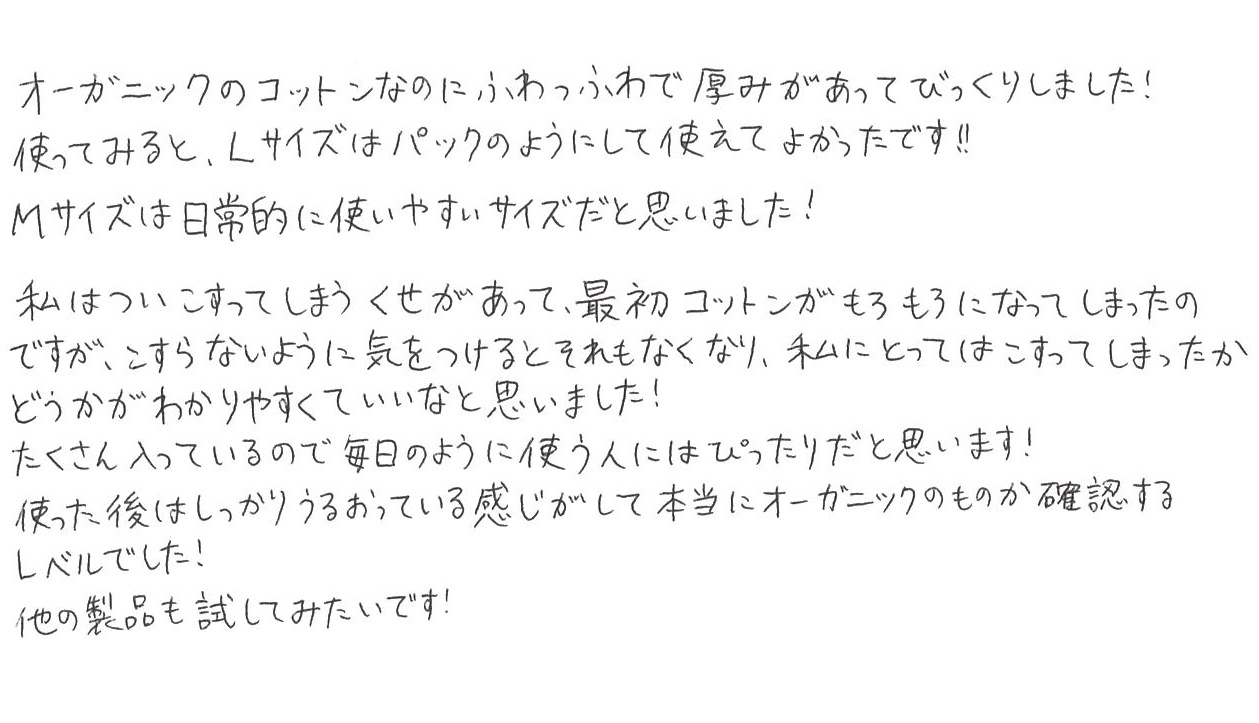 オーガニックのコットンなのにふわっふわで厚みがあってびっくりしました!
使ってみると、Lサイズはパックのようにして使えてよかったです!!
Mサイズは日常的に使いやすいサイズだと思いました!
私はついこすってしまうくせがあって、最初コットンがもろもろになってしまったの
ですが、こすらないように気をつけるとそれもなくなり、私にとってはこすってしまったか
どうかがわかりやすくていいなと思いました!
たくさん入っているので毎日のように使う人にはぴったりだと思います!
使った後はしっかりうるおっている感じがして本当にオーガニックのものか確認する
レベルでした!
他の製品も試してみたいです!